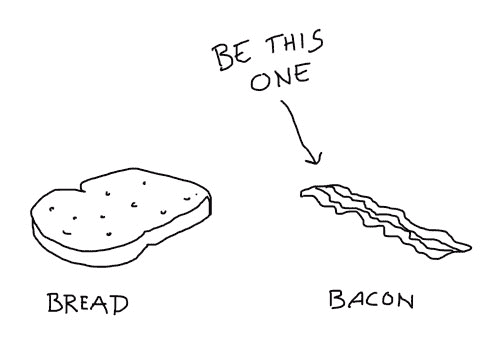 BE THIS
ONE
BREAD
BACON